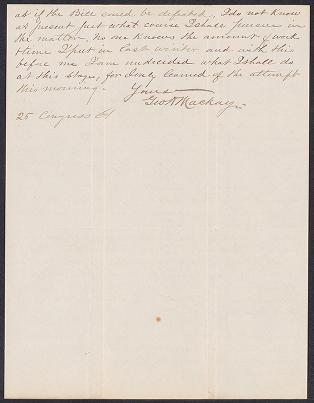 as if the Bill could be defeated, I do not know
at present just what course I shall pursue in
the matter, no one knows the amount of work
& time I put in last winter and with this
before me I am undecided what I shall do
at this stage, for I only learned of the attempt
this morning.
Yours
Geo A Mackay
25 Congress St